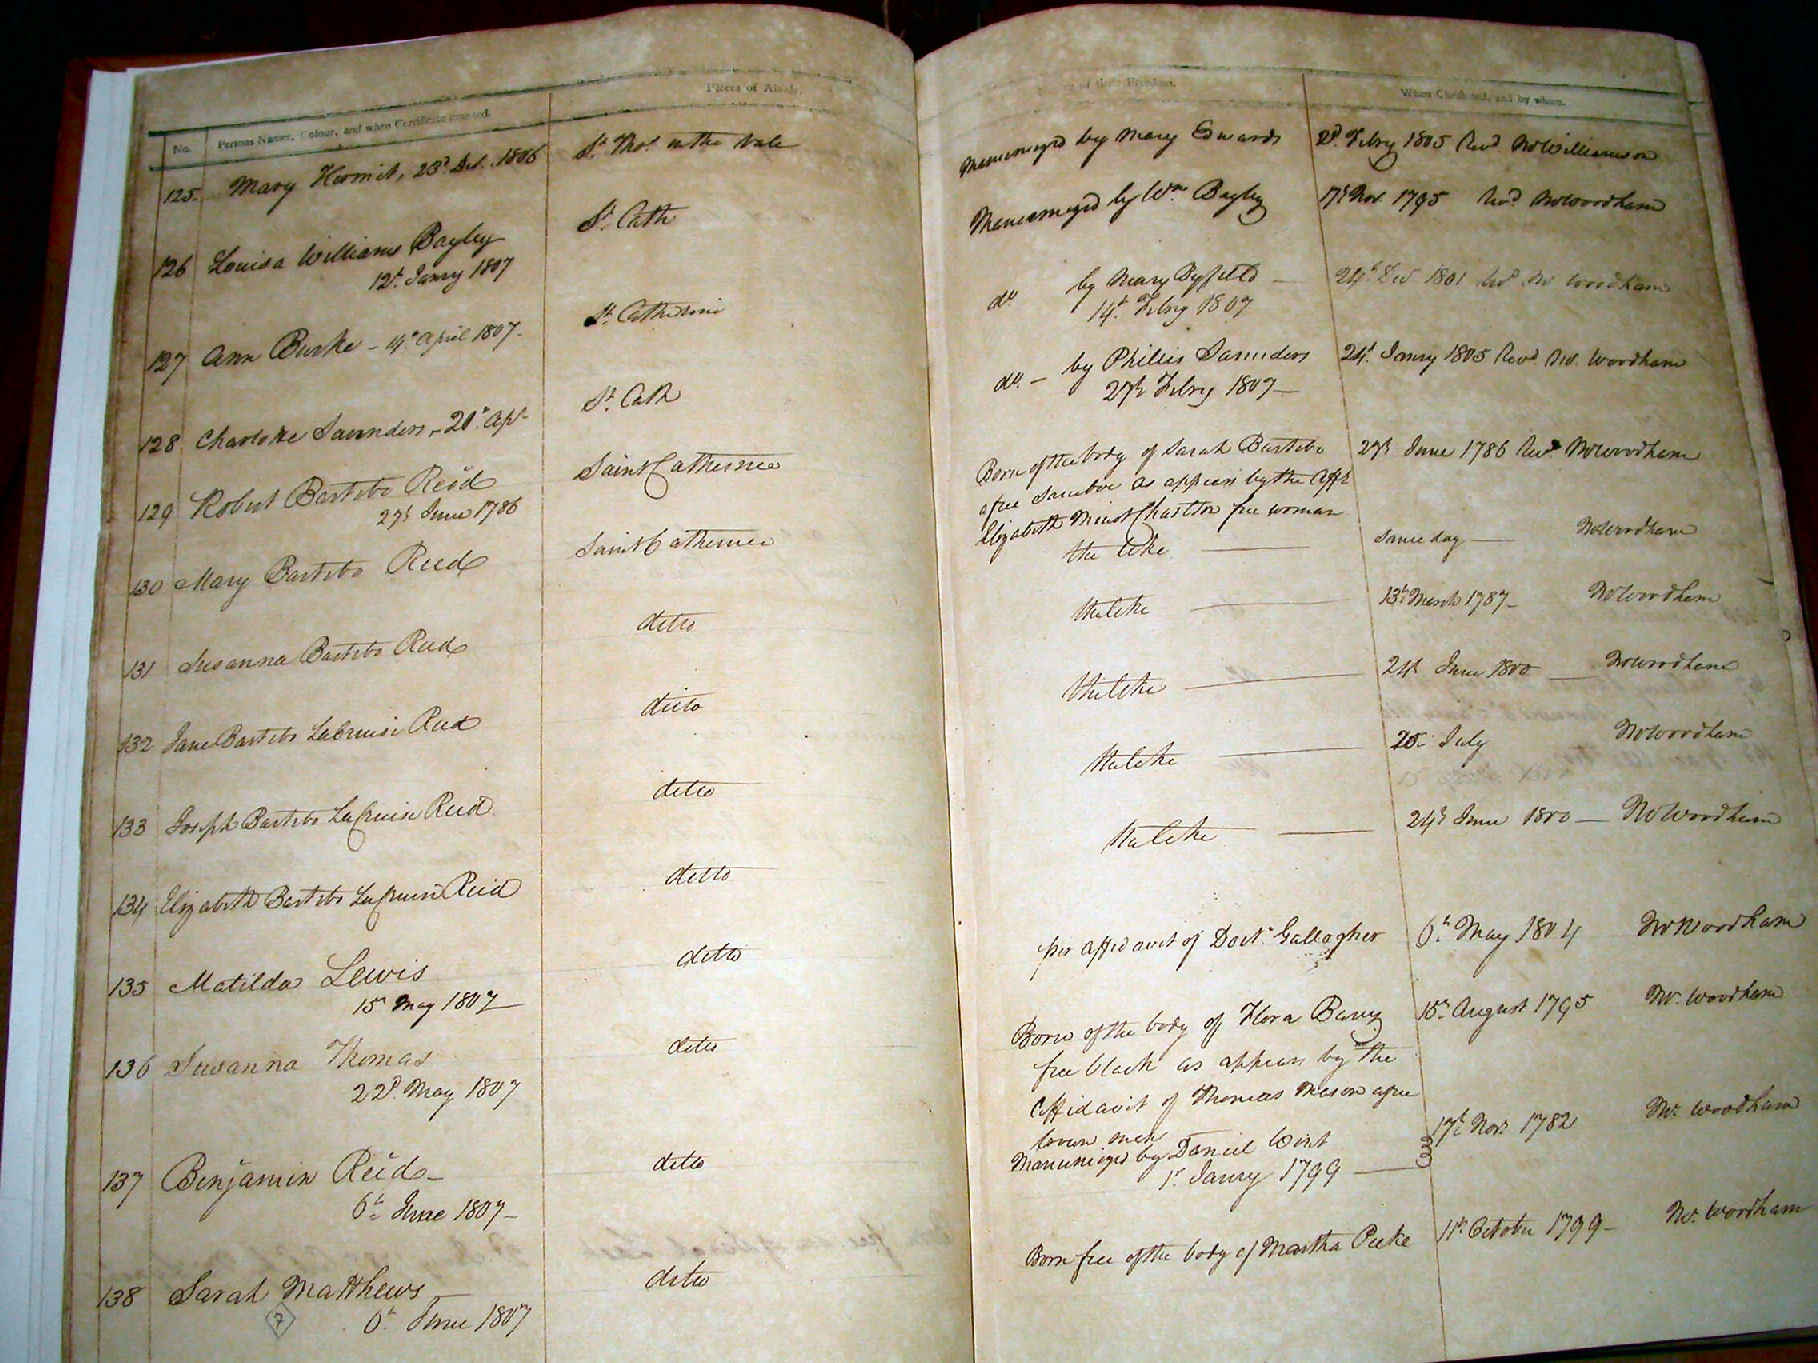 No. Persons Names, Colour, and when Certificate granted. Places of Abode.
of their Freedom. When Christened, and by whom.
125 Mary Hermit, 23d Decr. 1806 St. Thos. in the Vale Manumized by Mary Edwards 2d. Febry 1805 Revd. Mr Williamson
126 Louisa Williams Bayley St. Cath Manumized by Wm. Bayley 17th Nov. 1795 Revd. Mr Woodham
12th Janry 1807
127 Ann Burke - 4th April 1807. St. Catherine do by Mary Byfield 24th Decr 1801 Revd Mr Woodham
14th Febry 1807
128 Charlotte Saunders - 20th Apl. St. Cath do. by Phillis Saunders 24th Janry 1805 Revd. Mr. Woodham
27th Febry 1807
129 Robert Bartibo Reid Saint Catherine Born of the body of Sarah Bartibo 27th June 1786 Revd. Mr Woodham
27th June 1786 a free as appears by the Afft
Elizabeth Minot Charlton free woman
130 Mary Bartibo Reid Saint Catherine the like same day Mr Woodham
131 Susanna Bartibo Reid ditto the like 13th March 1787 Mr Woodham
132 Jane Bartibo LaCruise Reid ditto the like 24th June 1800 Mr Woodham
133 Joseph Bartibo LaCruise Reid ditto the like July Mr Woodham
134 Elizabeth Bartibo LaCruise Reid ditto the like 24th June 1800 Mr Woodham
135 Matilda Lewis ditto per affidavit of Doctr. Gallagher 6th May 1804 Mr Woodham
15th May 1807
136 Susanna Thomas ditto Born of the body of Flora Barry August 1795 Mr. Woodham
22d. May 1807 free black as appears by the
affidavit of Thomas Mason a free
brown man
137 Benjamin Reid ditto Manumized by Daniel Wint 17th Novr 1782 Mr Woodham
6th June 1807 1st Janry 1799
138 Sarah Matthews ditto Born free of the body of Martha Peeke 11th October 1799 Mr. Woodham
6th June 1807
7